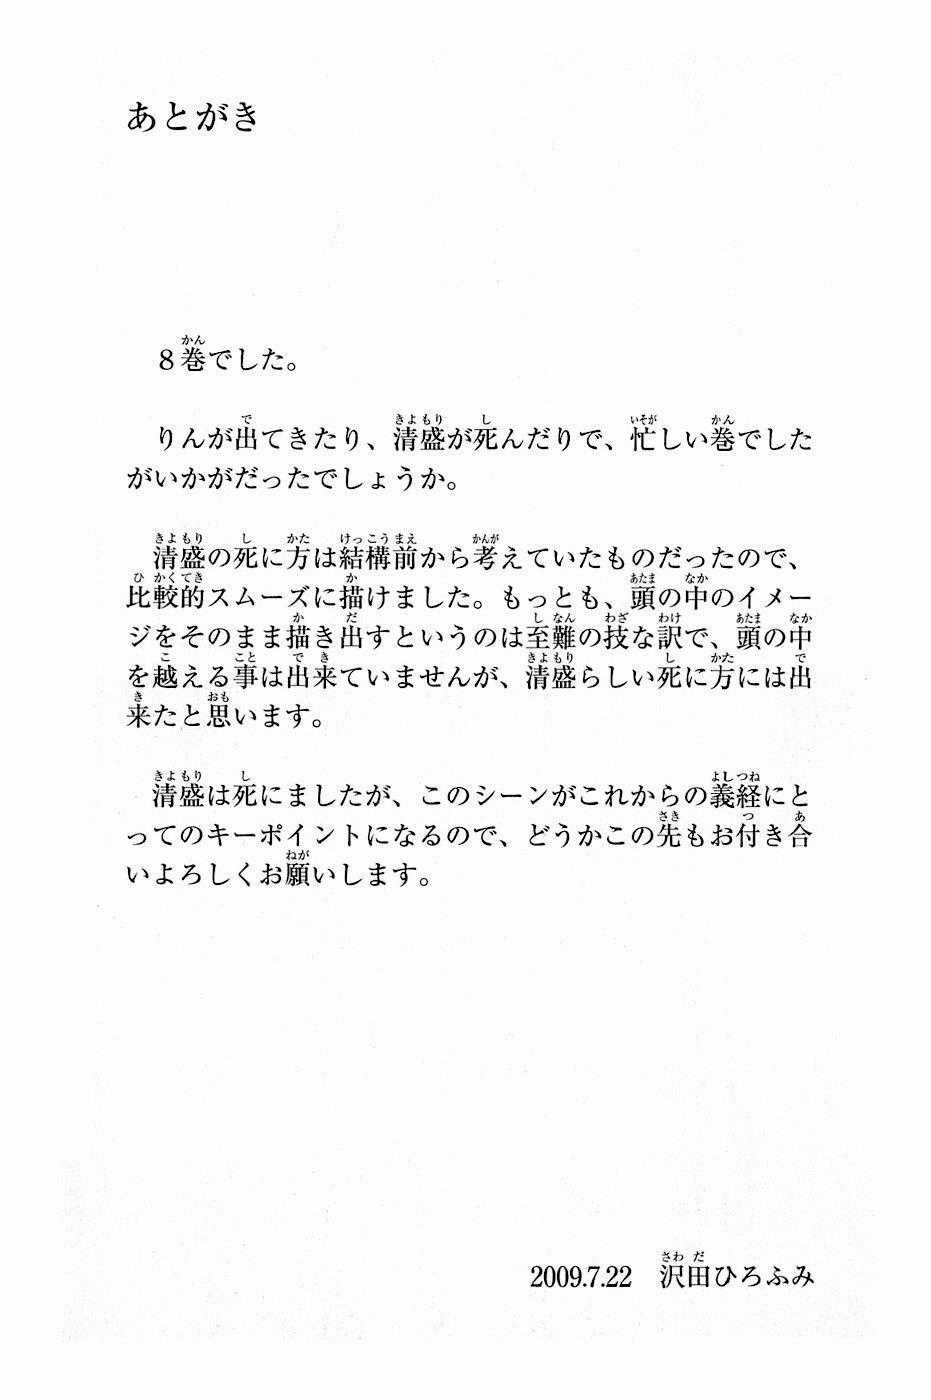 あとがき
８巻でした。
りんが出てきたり、清盛が死んだりで、忙しい巻でした
がいかがだったでしょうか。
清盛の死に方は結構前から考えていたものだったので、
比較的スムーズに描けました。もっとも、頭の中のイメー
ジをそのまま描き出すというのは至難の技な訳で、頭の中
を越える事は出来ていませんが、清盛らしい死に方には出
来たと思います。
清盛は死にましたが、このシーンがこれからの義経にと
ってのキーポイントになるので、どうかこの先もお付き合
いよろしくお願いします。
2009.7.22　沢田ひろふみ